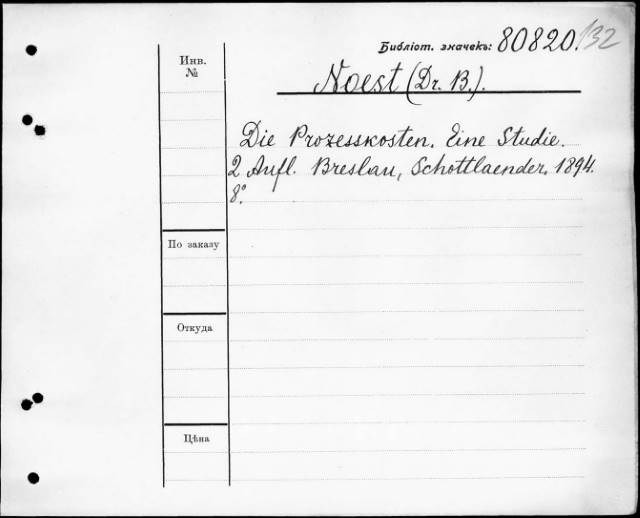 Библіот. значекъ: 80820. 132
Инв. №
Noest (Dr. B.).
Die Prozesskosten. Eine Studie.
2 Aufl. Breslau, Schottlaender, 1894.
8°.
По заказу
Откуда
Цѣна